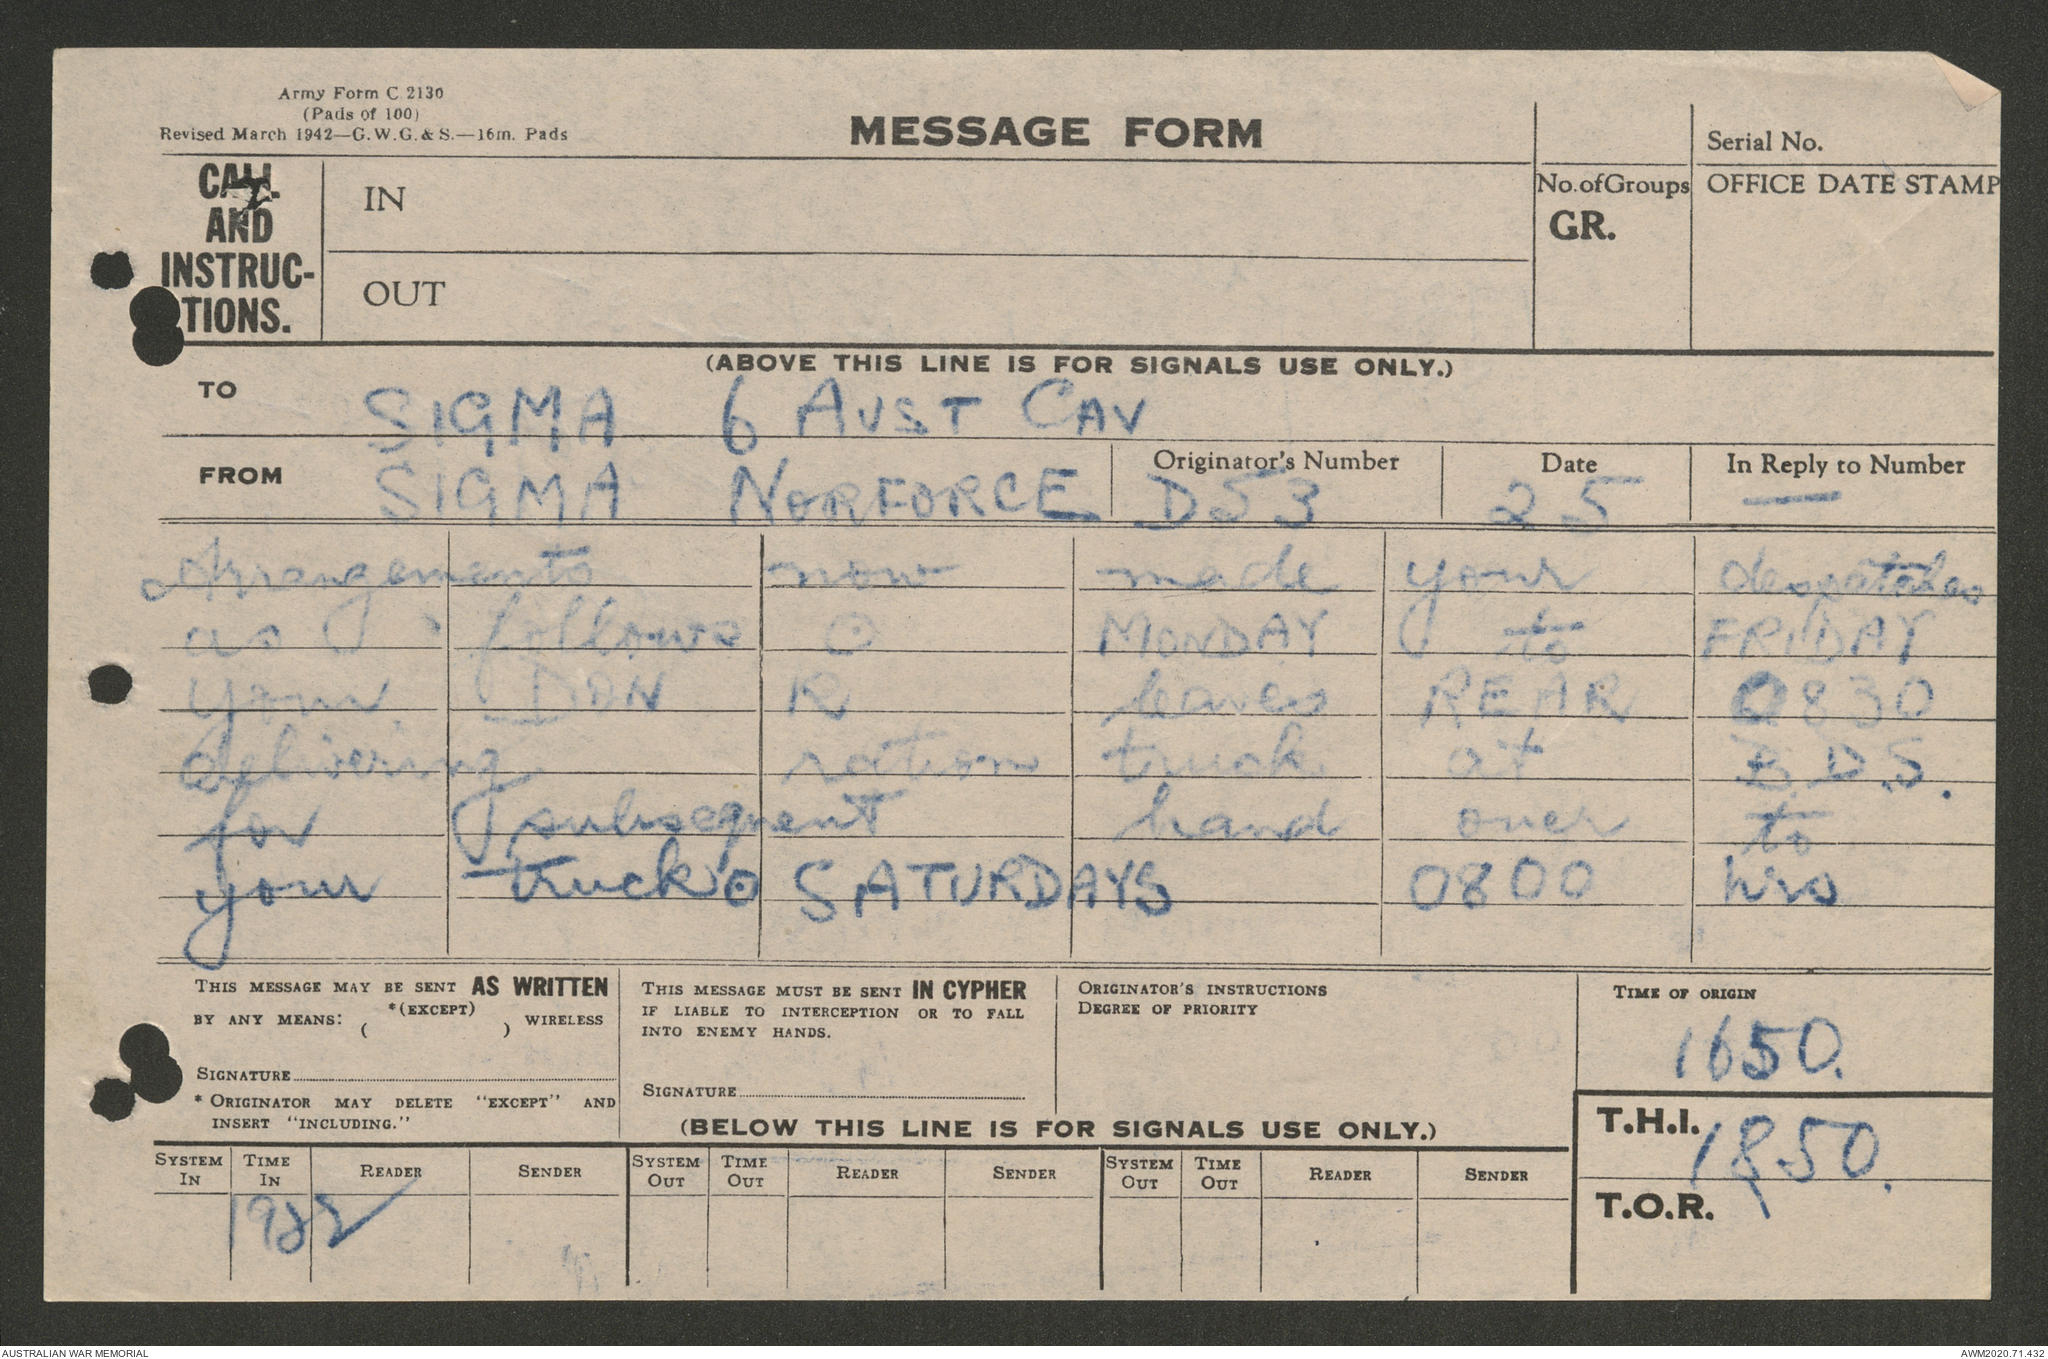 Army Form C 2130
(Pads of 100)
Revised March 1942—G.W.G.& S.—16m. Pads
MESSAGE FORM
Serial No.
CALL
AND
INSTRUC-
TIONS.
IN
OUT
No. of Groups
GR.
OFFICE DATE STAMP
(ABOVE THIS LINE IS FOR SIGNALS USE ONLY.)
TO SIGMA 6 AUST CAV
FROM SIGMA NORFORCE
Originator's Number D53
Date 25
In Reply to Number —
Arrangements now made your despatches
as follows ⊙ MONDAY to FRIDAY
your DON R leaves REAR 0830
delivering ration truck at B.D.S.
for subsequent hand over to
your truck ⊙ SATURDAYS 0800 hrs
THIS MESSAGE MAY BE SENT AS WRITTEN
BY ANY MEANS: *(EXCEPT) ( ) WIRELESS
SIGNATURE
* ORIGINATOR MAY DELETE "EXCEPT" AND
INSERT "INCLUDING."
THIS MESSAGE MUST BE SENT IN CYPHER
IF LIABLE TO INTERCEPTION OR TO FALL
INTO ENEMY HANDS.
SIGNATURE
ORIGINATOR'S INSTRUCTIONS
DEGREE OF PRIORITY
TIME OF ORIGIN
1650.
(BELOW THIS LINE IS FOR SIGNALS USE ONLY.)
T.H.I. 1850.
T.O.R.
SYSTEM IN TIME IN READER SENDER SYSTEM OUT TIME OUT READER SENDER SYSTEM OUT TIME OUT READER SENDER
AUSTRALIAN WAR MEMORIAL
AWM2020.71.432